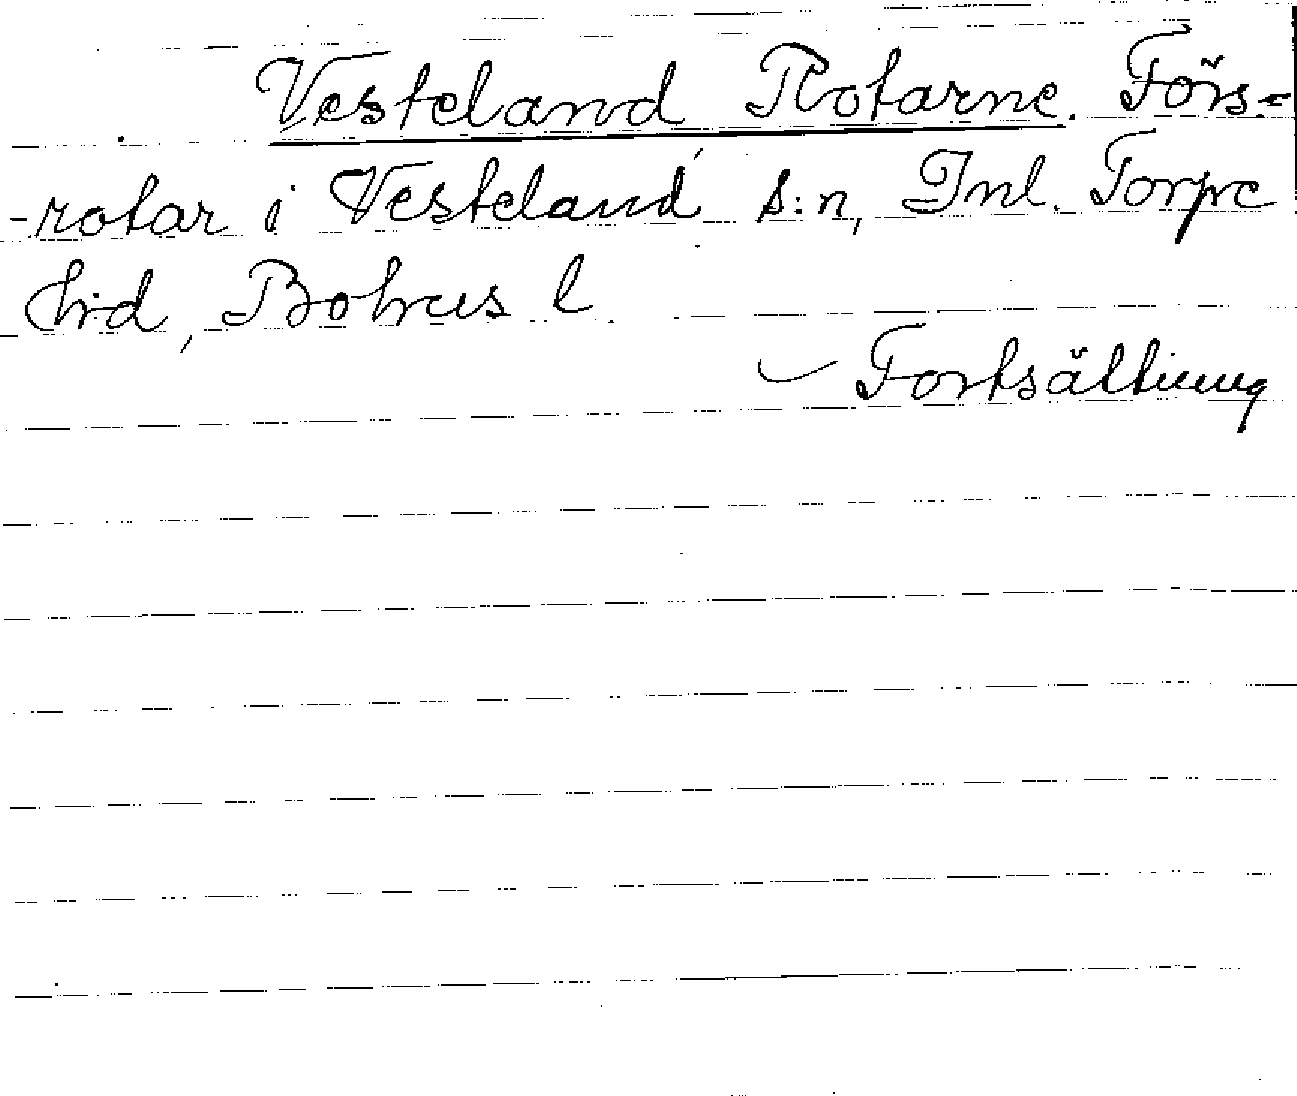 Vesteland Rotarne. Förs-
-rotar i Vesteland s:n, Inl. Torpe
hrd, Bohus l.
Fortsättning